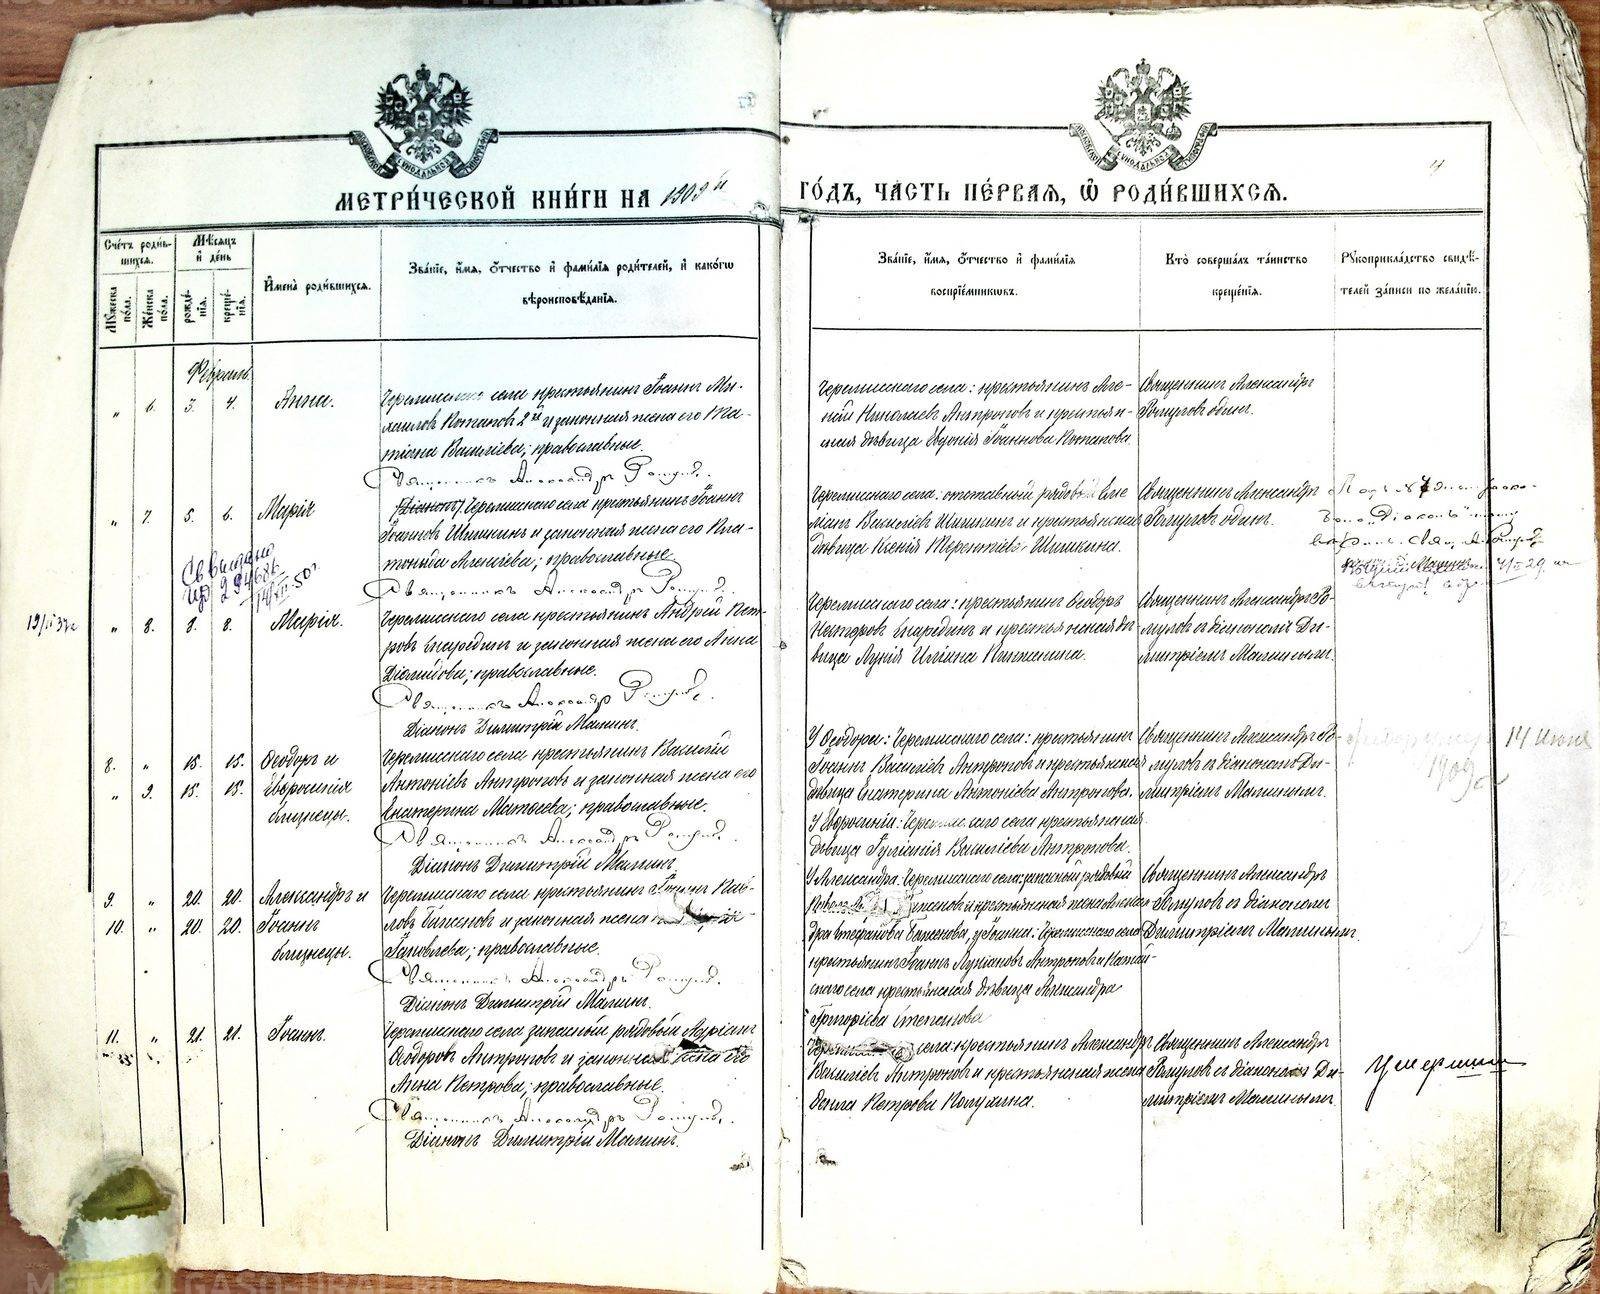 МЕТРИ́ЧЕСКОЙ КНИ́ГИ НА 1909 й ГО́ДЪ, ЧА́СТЬ ПЕ́РВАЯ, Ѿ РОДИ́ВШИХСЯ.
Сче́тъ роди́в-
шихся.
Му́жеска по́ла.
Же́нска по́ла.
Мѣ́сяцъ и҆ де́нь
рожде́нїя.
креще́нїя.
И҆мена̀ роди́вшихся.
Зва́нїе, и҆́мя, ѻ҆́тчество и҆ фами́лїя роди́телей, и҆ како́гѡ
вѣроисповѣ́данїя.
Зва́нїе, и҆́мя, ѻ҆́тчество и҆ фами́лїя
воспрїе́мникѡвъ.
Кто̀ соверша́лъ та́инство
креще́нїя.
Рꙋкоприкла́дство свидѣ́-
телей за́писи по жела́нїю.
Февраль.
" 6. 3. 4. Анна.
Черемисскаго села крестьянинъ Іоаннъ Ми-
хаиловъ Потаповъ 2й и законная жена его Та-
тіана Василіева; православные.
Священникъ Александръ Ромулов.
Черемисскаго села: крестьянинъ Але-
Николаевъ Антроповъ и крестьян-
ская дѣвица Евдокія Іоаннова Потапова
Священникъ Александръ
Ромуловъ одинъ.
" 7. 5. 6. Марія
[Діаконъ] Черемисскаго села крестьянинъ Іоаннъ
Іоанновъ Шишкинъ и законная жена его Пла-
тонида Алексіева; православные.
Священникъ Александръ Ромулов.
Черемисскаго села: отставный рядовой Еме-
ліанъ Василіевъ Шишкинъ и крестьянская
дѣвица Ксенія Терентіева Шишкина.
Священникъ Александръ
Ромуловъ одинъ.
"Діаконъ"
Св выдано
294686
14/VII-50г
" 8. 8. 8. Марія.
Черемисскаго села крестьянинъ Андрей Пет-
ровъ и законная жена его Анна
Діомидова; православные.
Священникъ Александръ Ромулов.
Діаконъ Димитрій Малининъ.
Черемисскаго села: крестьянинъ Ѳеодоръ
Несторовъ и крестьянская дѣ-
вица Лукія Ильина
Священникъ Александръ Ро-
муловъ съ діакономъ Ди-
митріемъ Малининымъ.
8. " 15. 15. Ѳеодоръ и
" 9. 15. 15. Евфросинія
близнецы.
Черемисскаго села крестьянинъ Василій
Антоніевъ Антроповъ и законная жена его
Екатерина Матѳеева; православные.
Священникъ Александръ Ромулов.
Діаконъ Димитрій Малининъ.
У Ѳеодора: Черемисскаго села: крестьянинъ
Іоаннъ Василіевъ Антроповъ и крестьянская
дѣвица Екатерина Антоніева Антропова.
У Евфросиніи: Черемисскаго села крестьянская
дѣвица Іуліанія Василіева Антропова.
Священникъ Александръ Ро-
муловъ съ діакономъ Ди-
митріемъ Малининымъ.
14 июня
1909 г
9. " 20. 20. Александръ и
10. " 20. 20. Іоаннъ
близнецы.
Черемисскаго села крестьянинъ Іоаннъ Пав-
ловъ Баженовъ и законная жена
Іаковлева; православные.
Священникъ Александръ Ромулов.
Діаконъ Димитрій Малининъ.
У Александра: Черемисскаго села: запасный рядовый
Баженовъ и крестьянская жена Алексан-
дра Стефанова Баженова, у Іоанна: Черемисскаго села
крестьянинъ Іоаннъ Лукіановъ Антроповъ и
села крестьянская дѣвица Александра
Григоріева Степанова
Священникъ Александръ
Ромуловъ съ діакономъ
Димитріемъ Малининымъ.
11. " 21. 21. Іоаннъ.
Черемисскаго села запасный рядовый
Ѳеодоровъ Антроповъ и законная жена его
Анна Петрова; православные.
Священникъ Александръ Ромулов.
Діаконъ Димитрій Малининъ.
села крестьянинъ Александръ
Василіевъ Антроповъ и крестьянская жена
Петрова
Священникъ Александръ
Ромуловъ съ діакономъ Ди-
митріемъ Малининымъ.